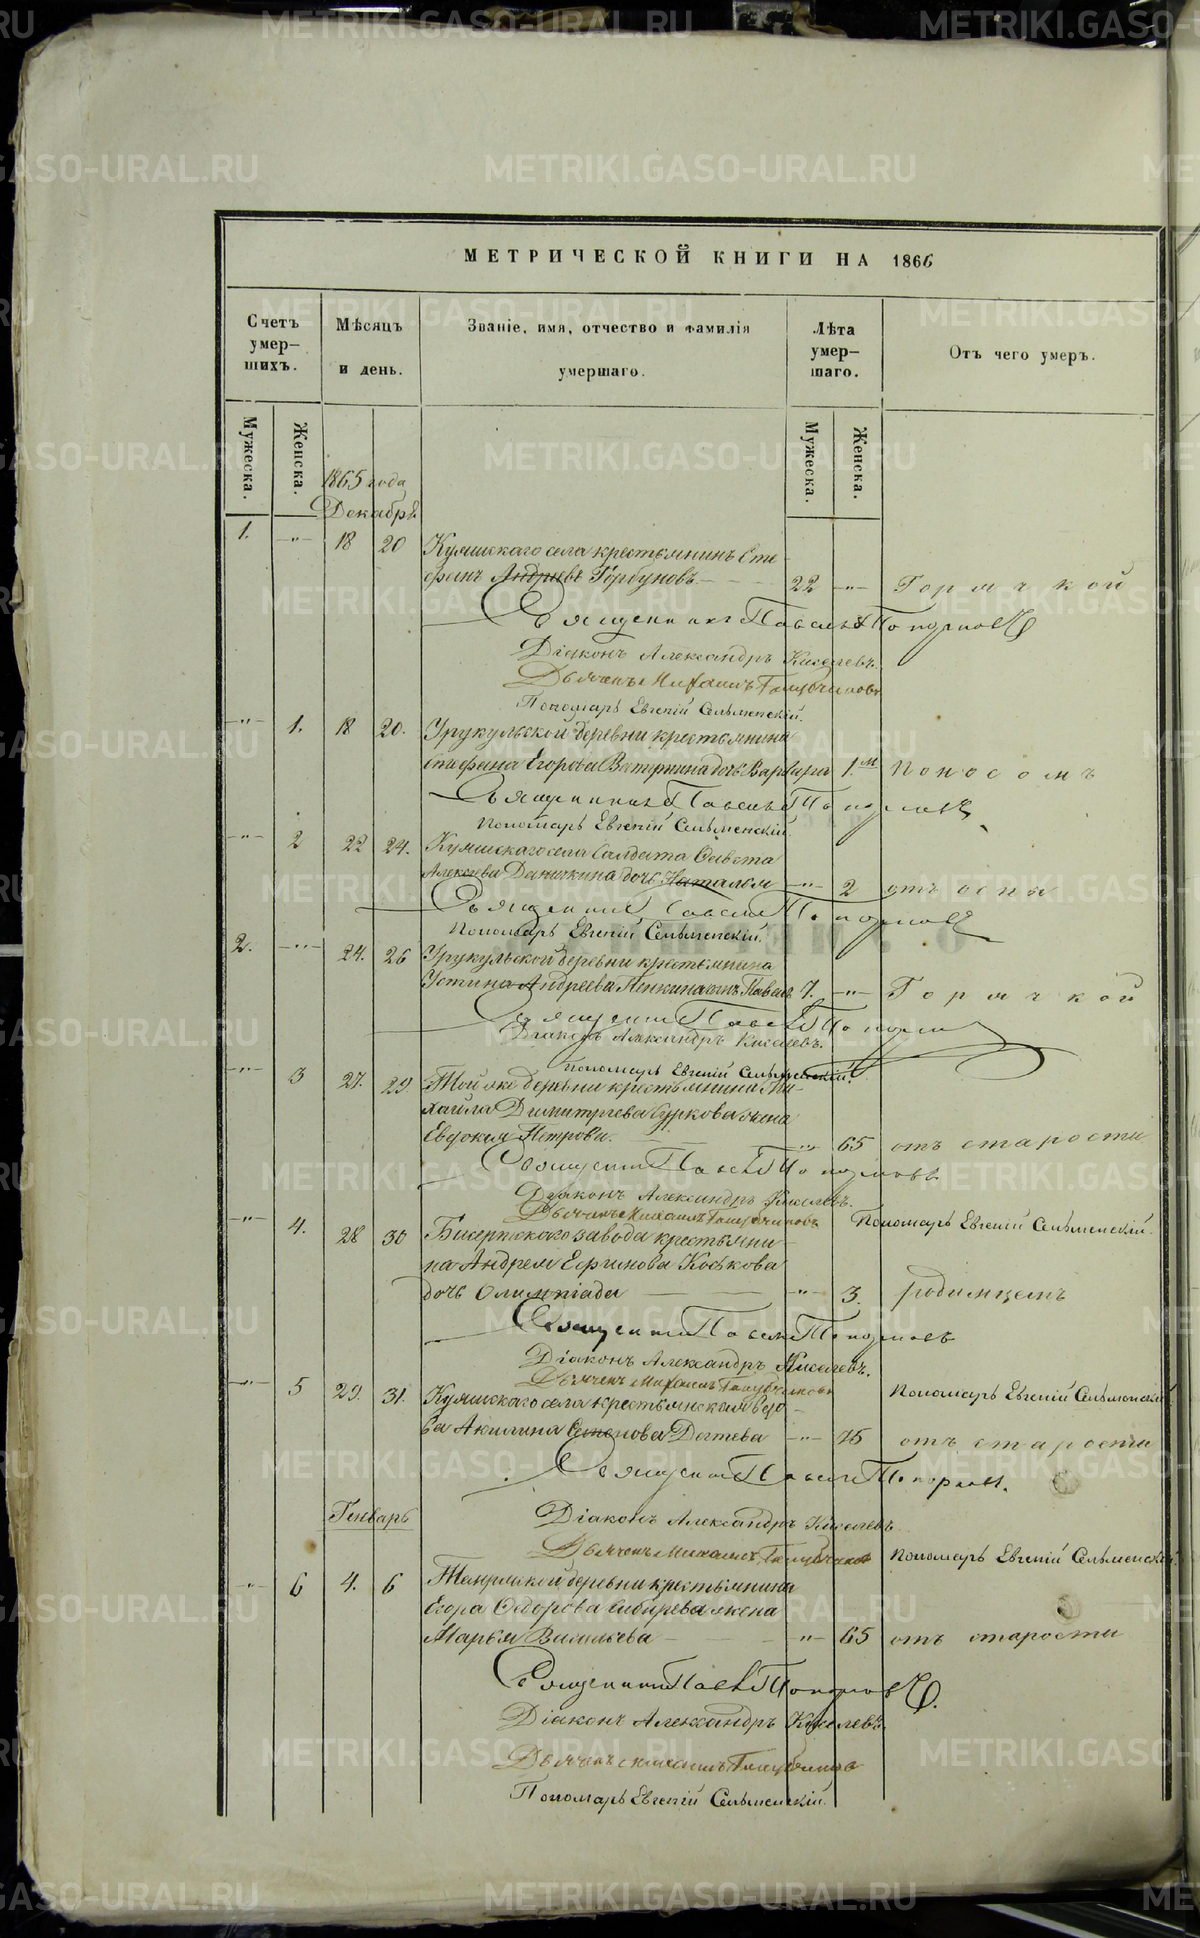 МЕТРИЧЕСКОЙ КНИГИ НА 1866
Счетъ умер-шихъ.
Мѣсяцъ и день.
Званіе, имя, отчество и фамилія умершаго.
Лѣта умер-шаго.
Отъ чего умеръ.
Мужеска.
Женска.
Мужеска.
Женска.
1865 года
Декабрь
1. -"- 18 20 Куяшскаго села крестьянинъ Сте-
фанъ Андреевъ Горбуновъ 22 -"- Горячкой
Священникъ Павелъ Топорковъ
Діаконъ Александръ Киселевъ.
Дьячекъ Михаилъ Голубчиковъ
Пономарь Евгеній Сельменскій.
-"- 1. 18 20. Урукульской деревни крестьянина
Егорова дочь Варвара 1.м Поносомъ
Священникъ Павелъ Топорковъ
Пономарь Евгеній Сельменскій
-"- 2 22 24. Куяшскаго села Солдата
Алексеева дочь Наталья -"- 2 отъ оспы
Священникъ Павелъ Топорковъ
Пономарь Евгеній Сельменскій.
2. -"- 24. 26 Урукульской деревни крестьянина
Устина Андреева Пенкина сынъ Павелъ 7. -"- Горячкой
Священникъ Павелъ Топорковъ
Діаконъ Александръ Киселевъ.
Пономарь Евгеній Сельменскій.
-"- 3 27. 29 Той же деревни крестьянина Ми-
хаила Димитріева Суркова жена
Евдокия Петрова. -"- 65 отъ старости
Священникъ Павелъ Топорковъ
Діаконъ Александръ Киселевъ.
Дьячекъ Михаилъ Голубчиковъ Пономарь Евгеній Сельменскій.
-"- 4. 28 30 Бисертскаго завода крестьяни-
на Андрея Конькова
дочь Олимпіада -"- 3. родимцемъ
Священникъ Павелъ Топорковъ
Діаконъ Александръ Киселевъ.
Дьячекъ Михаилъ Голубчиковъ Пономарь Евгеній Сельменскій
-"- 5 29. 31. Куяшскаго села крестьянская вдо-
ва Акилина Семенова -"- 75 отъ старости
Священникъ Павелъ Топорковъ.
Генварь
Діаконъ Александръ Киселевъ
Дьячекъ Михаилъ Голубчиковъ Пономарь Евгеній Сельменскій
-"- 6 4. 6 деревни крестьянина
Егора Ѳедорова жена
Марья Васильева -"- 65 отъ старости
Священникъ Павелъ Топорковъ.
Діаконъ Александръ Киселевъ.
Дьячекъ Михаилъ Голубчиковъ
Пономарь Евгеній Сельменскій.
METRIKI.GASO-URAL.RU